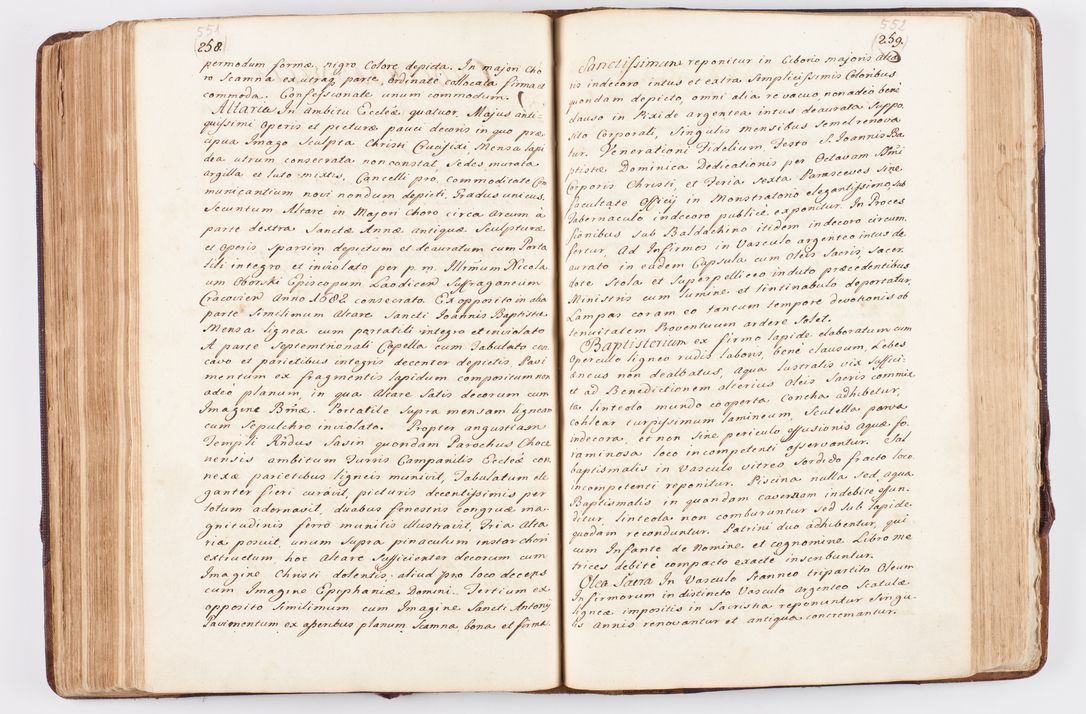 551
258.
permodum formæ, nigro Colore depicta. In majori Cho
ro Scamna ex utraq parte, ordinatè collocata firma et
commoda. Confessionale unum commodum.
Altaria In ambitu Eccleæ quatuor. Majus anti-
quissimi Operis et picturæ pauci decoris in quo præ
cipua Imago Sculpta Christi Crucifixi, Mensa lapi
dea utrum consecrata non constat, Sedes murata
argilla et luto mixtis, Cancelli pro, commoditate Co
municantium novi nondum depicti, Gradus unicus.
Secuntum Altare in Majori Choro circa Arcum à
parte dextra Sanctæ Annæ antiquæ Sculpturæ
et Operis Sparsim depictum et deauratum cum Porta
tili integro et inviolato per p. m. Illrmum Nicola
um Oborski Episcopum Laodicen Suffraganeum
Cracovien Anno 1682 consecrato. Ex opposito in alia
parte Similimum Altare Sancti Joannis Baptistæ
Mensa lignea cum portatili integro et inviolato
A parte Septemtrionali Capella cum Tabulato con
cavo et parietibus integris decenter depictis, Pavi
mentum ex fragmentis lapidum compositum non
adeò planum, in qua Altare Satis decorum cum
Imagine Bmæ. Portatile Supra mensam ligneam
cum Sepulchro inviolato. Propter angustiam
Templi Rndus Sasin quondam Parochus Choce
nensis ambitum Turris Campanilis Eccleæ con
nexæ parietibus ligneis munivit, Tabulatum ele
ganter fieri curavit, picturis decentissimis per
totum adornavit, duabus fenestris congruæ ma
gnitudinis ferro munitis illustravit, Tria Alta
ria posuit, unum Supra pinaculum instar chori
extructum hoc Altare Sufficienter decorum cum
Imagine Christi dolentis, aliud pro loco decens
cum Imagine Epiphaniæ Domini. Tertium ex
opposito Similimum cum Imagine Sancti Antonij
Pavimentum ex asseribus planum Scamna bona et firma.
552
259.
Sanctissimum reponitur in Ciborio majoris Alta
ris indecoro intus et extra Simplicissimis Coloribus
quondam depicto, omni alia re vacuo, non adeò bené
clauso in Pixide argentea intus deaurata Suppo
sito Corporali, Singulis mensibus Semel renova
tur. Venerationi Fidelium, Festo S. Joannis Ba
ptistæ Dominica Dedicationis per Octavam Smi
Corporis Christi, et Feria Sexta Parasceves Sine
facultate Officij in Monstratorio elegantissimo Sub
Tabernaculo indecoro publicè exponitur. In Proces
sionibus Sub Baldachino itidem indecoro circum
fertur, Ad Infirmos in Vasculo argenteo intus de
aurato in eadem Capsula cum Oleis Sacris, Sacer
dote Stola et Superpelliceo induto præcedentibus
Ministris cum lumine, et tintinabulo deportatur,
Lampas coram eo tantum tempore devotionis ob
tenuitatem Proventuum ardere Solet.
Baptisterium ex firmo lapide elaboratum cum
Operculo ligneo rudis laboris, bene clausum, Lebes
æneus non dealbatus, aqua lustralis vix Suffici
et ad Benedictionem alterius Oleis Sacris commix
ta, linteolo mundo cooperta Concha adhibetur,
Cohlear turpissimum lamineum, Scutella parva
indecora, et non Sine periculo effusionis aquæ fo
raminosa loco incompetenti asservantur. Sal
baptismalis in Vasculo vitreo Sordido fracto loco
incompetenti reponitur. Piscina nulla Sed aqua
Baptismalis in quandam cavernam indebitè effun-
ditur, linteola non comburuntur Sed Sub lapide
quodam reconduntur. Patrini duo adhibentur, qui
cum Infante de Nomine, et cognomine Libro me
trices debite compacto exactè inscribuntur.
Olea Sacra In Vasculo Stanneo tripartito Oleum
Infirmorum in distincto Vasculo argenteo Scatulæ
ligneæ impositis in Sacristia reponuntur Singu
lis Annis renovantur et antiqua concremantur.